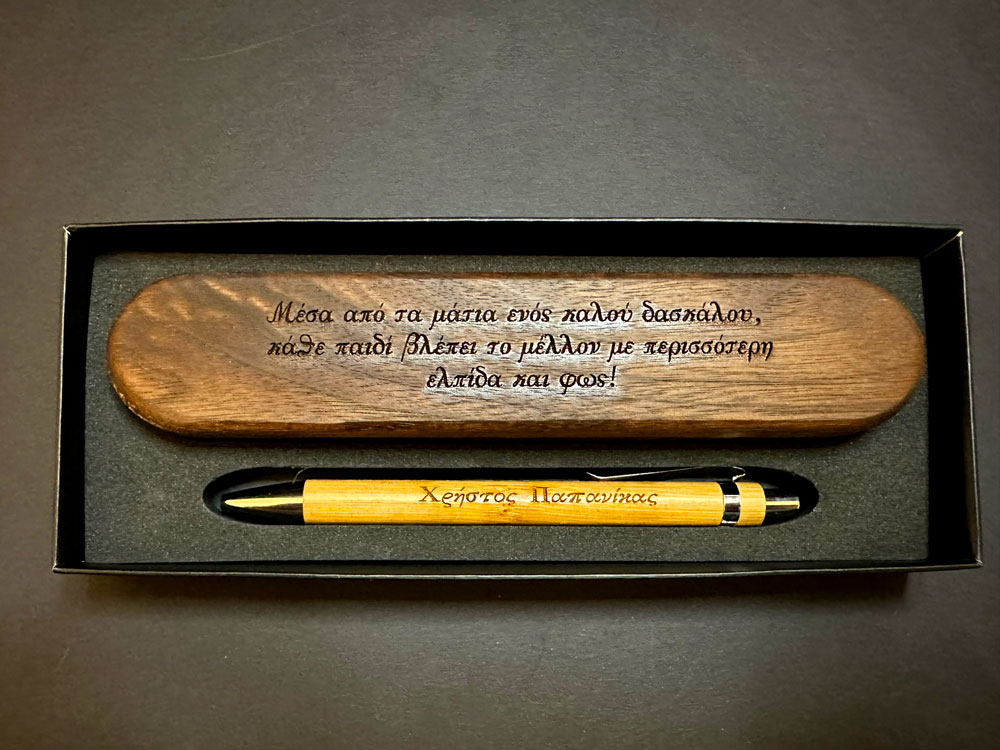 Μέσα από τα μάτια ενός καλού δασκάλου,
κάθε παιδί βλέπει το μέλλον με περισσότερη
ελπίδα και φως!
Χρήστος Παπανίκας